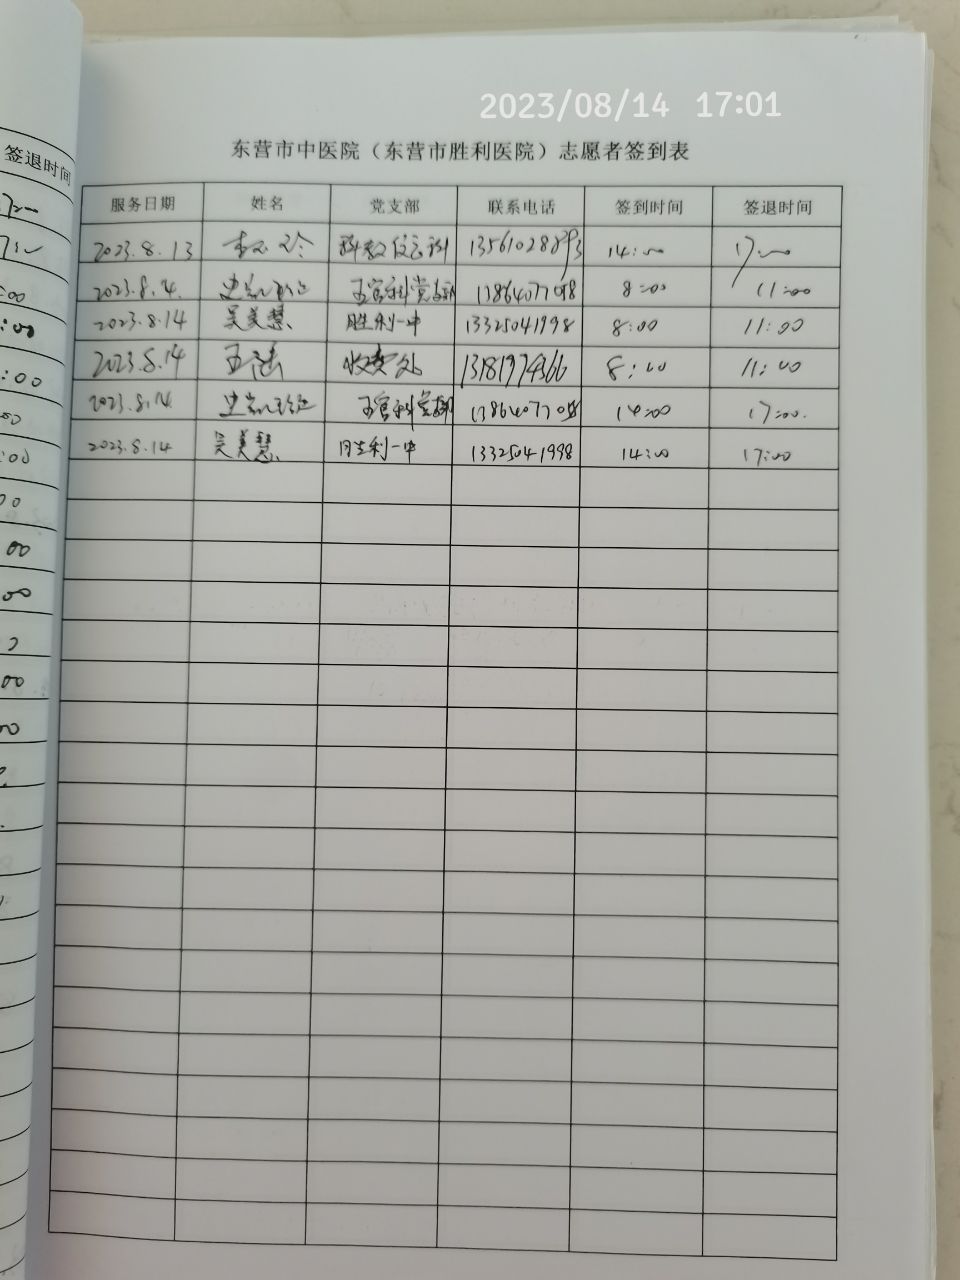 2023/08/14 17:01
东营市中医院（东营市胜利医院）志愿者签到表
签退时间
服务日期 姓名 党支部 联系电话 签到时间 签退时间
2023.8.13 14:00 17:00
2023.8.14. 五官科党支部 8:00 11:00
2023.8.14 吴美慧 胜利一中 13325041998 8:00 11:00
2023.8.14 收费处 13181974366 8:00 11:00
2023.8.14. 五官科党支部 14:00 17:00.
2023.8.14 吴美慧 胜利一中 13325041998 14:00 17:00